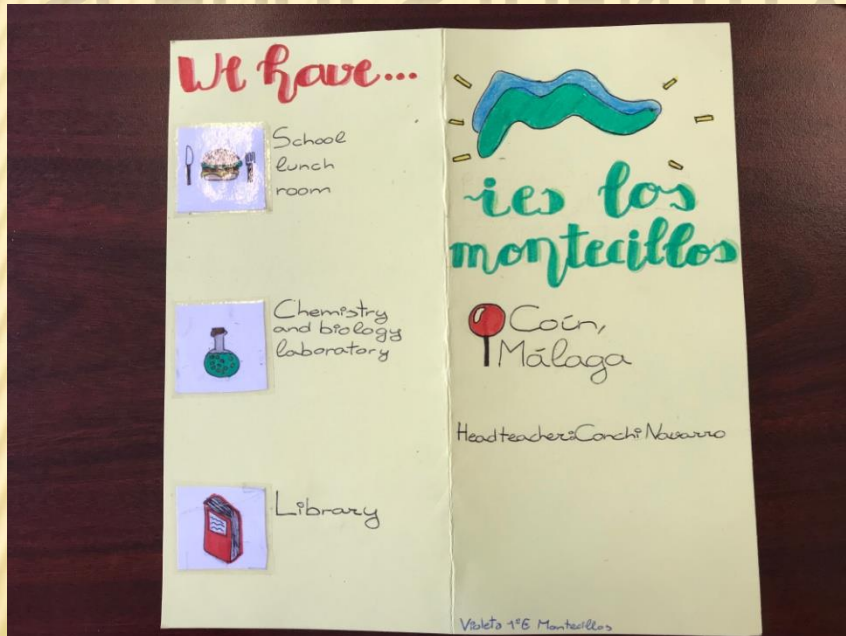 We have...
School
lunch
room
Chemistry
and biology
laboratory
Library
ies los
montecillos
Coín,
Málaga
Headteacher:Conchi Navarro
Violeta 1ºE Montecillos